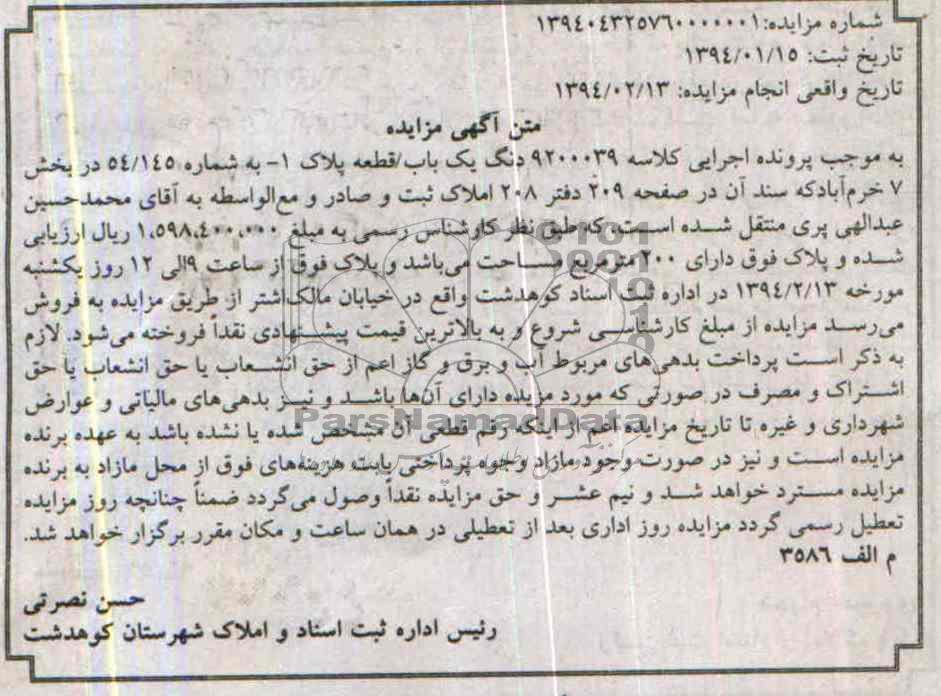 شماره مزایده: ۱۳۹۴۰۴۳۲۵۷۶۰۰۰۰۰۰۱
تاریخ ثبت: ۱۳۹۴/۰۱/۱۵
تاریخ واقعی انجام مزایده: ۱۳۹۴/۰۲/۱۳
متن آگهی مزایده
به موجب پرونده اجرایی کلاسه ۹۲۰۰۰۳۹ دنگ یک باب/قطعه پلاک ۱- به شماره ۵۴/۱۴۵ در بخش
۷ خرم‌آبادکه سند آن در صفحه ۲۰۹ دفتر ۲۰۸ املاک ثبت و صادر و مع‌الواسطه به آقای محمدحسین
عبدالهی پری منتقل شده است، که طبق نظر کارشناس رسمی به مبلغ ۱،۵۹۸،۴۰۰،۰۰۰ ریال ارزیابی
شده و پلاک فوق دارای ۲۰۰ مترمربع مساحت می‌باشد و پلاک فوق از ساعت ۹الی ۱۲ روز یکشنبه
مورخه ۱۳۹۴/۲/۱۳ در اداره ثبت اسناد کوهدشت واقع در خیابان مالک‌اشتر از طریق مزایده به فروش
می‌رسد مزایده از مبلغ کارشناسی شروع و به بالاترین قیمت پیشنهادی نقداً فروخته می‌شود. لازم
به ذکر است پرداخت بدهی‌های مربوط آب و برق و گاز اعم از حق انشعاب یا حق انشعاب یا حق
اشتراک و مصرف در صورتی که مورد مزایده دارای آن‌ها باشد و نیز بدهی‌های مالیاتی و عوارض
شهرداری و غیره تا تاریخ مزایده اعم از اینکه رقم قطعی آن مشخص شده یا نشده باشد به عهده برنده
مزایده است و نیز در صورت وجود مازاد وجوه پرداختی بابت هزینه‌های فوق از محل مازاد به برنده
مزایده مسترد خواهد شد و نیم عشر و حق مزایده نقداً وصول می‌گردد ضمناً چنانچه روز مزایده
تعطیل رسمی گردد مزایده روز اداری بعد از تعطیلی در همان ساعت و مکان مقرر برگزار خواهد شد.
م الف ۳۵۸۶
حسن نصرتی
رئیس اداره ثبت اسناد و املاک شهرستان کوهدشت
ParsNamadData